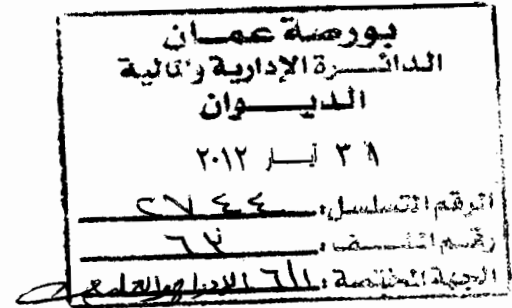 بورصة عمــان
الدائــرة الإدارية والمالية
الديــوان
٣١ أيــار ٢٠١٢
الرقم المتسلسل: ٢٧٤٤
رقــم الملــف:
الجهة المختصة: